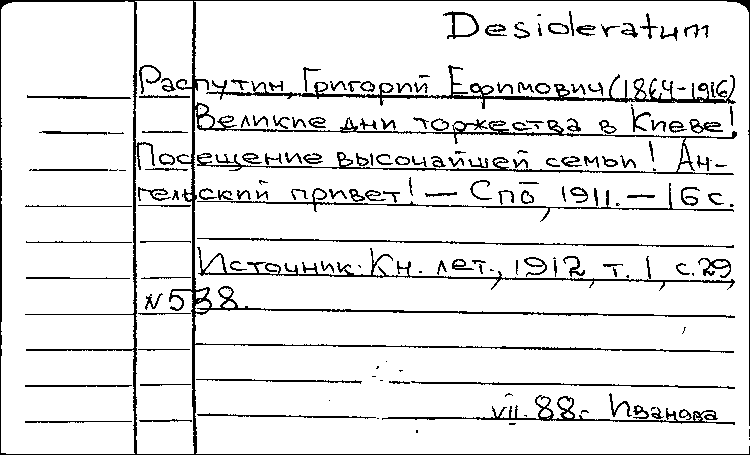 Desideratum
Распутин, Григорий Ефимович (1864-1916)
Великие дни торжества в Киеве!
Посещение высочайшей семьи! Ан-
гельский привет! — Спб, 1911. — 16 с.
Источник: Кн. лет., 1912, т. 1, с. 29,
N 538.
VII. 88 г. Иванова